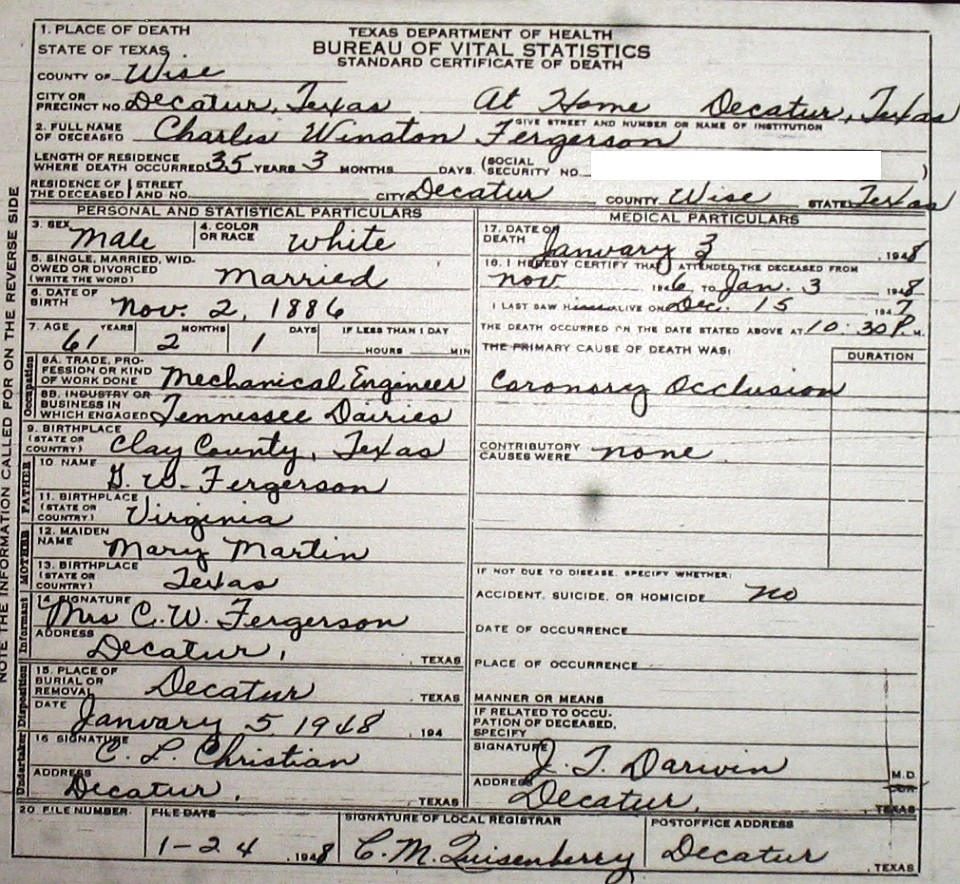 1. PLACE OF DEATH
STATE OF TEXAS
COUNTY OF Wise
TEXAS DEPARTMENT OF HEALTH
BUREAU OF VITAL STATISTICS
STANDARD CERTIFICATE OF DEATH
CITY OR PRECINCT NO. Decatur, Texas At Home Decatur, Texas
GIVE STREET AND NUMBER OR NAME OF INSTITUTION
2. FULL NAME OF DECEASED Charles Winston Fergerson
LENGTH OF RESIDENCE WHERE DEATH OCCURRED 35 YEARS 3 MONTHS DAYS. (SOCIAL SECURITY NO. )
RESIDENCE OF THE DECEASED STREET AND NO. CITY Decatur COUNTY Wise STATE Texas
NOTE THE INFORMATION CALLED FOR ON THE REVERSE SIDE
PERSONAL AND STATISTICAL PARTICULARS
3. SEX Male 4. COLOR OR RACE White
5. SINGLE, MARRIED, WIDOWED OR DIVORCED (WRITE THE WORD) Married
6. DATE OF BIRTH Nov. 2, 1886
7. AGE YEARS MONTHS DAYS IF LESS THAN 1 DAY
61 2 1 HOURS MIN
Occupation
8A. TRADE, PROFESSION OR KIND OF WORK DONE Mechanical Engineer
8B. INDUSTRY OR BUSINESS IN WHICH ENGAGED Tennessee Dairies
9. BIRTHPLACE (STATE OR COUNTRY) Clay County, Texas
FATHER
10. NAME G. W. Fergerson
11. BIRTHPLACE (STATE OR COUNTRY) Virginia
MOTHER
12. MAIDEN NAME Mary Martin
13. BIRTHPLACE (STATE OR COUNTRY) Texas
Informant
14 SIGNATURE Mrs C. W. Fergerson
ADDRESS Decatur, , TEXAS
Disposition
15. PLACE OF BURIAL OR REMOVAL Decatur , TEXAS
DATE January 5 1948 , 194
Undertaker
16 SIGNATURE C. L. Christian
ADDRESS Decatur, , TEXAS
MEDICAL PARTICULARS
17. DATE OF DEATH January 3 , 1948
18. I HEREBY CERTIFY THAT I ATTENDED THE DECEASED FROM
Nov 1946 TO Jan. 3 1948
I LAST SAW him ALIVE ON Dec. 15 1947
THE DEATH OCCURRED ON THE DATE STATED ABOVE AT 10:30 P. M.
THE PRIMARY CAUSE OF DEATH WAS: DURATION
Coronory Occlusion
CONTRIBUTORY CAUSES WERE none
IF NOT DUE TO DISEASE, SPECIFY WHETHER:
ACCIDENT, SUICIDE, OR HOMICIDE no
DATE OF OCCURRENCE
PLACE OF OCCURRENCE
MANNER OR MEANS
IF RELATED TO OCCUPATION OF DECEASED, SPECIFY
SIGNATURE J. T. Darwin M.D.
ADDRESS Decatur, TEXAS
20 FILE NUMBER FILE DATE SIGNATURE OF LOCAL REGISTRAR POSTOFFICE ADDRESS
1-24 , 1948 C. M. Quisenberry Decatur , TEXAS